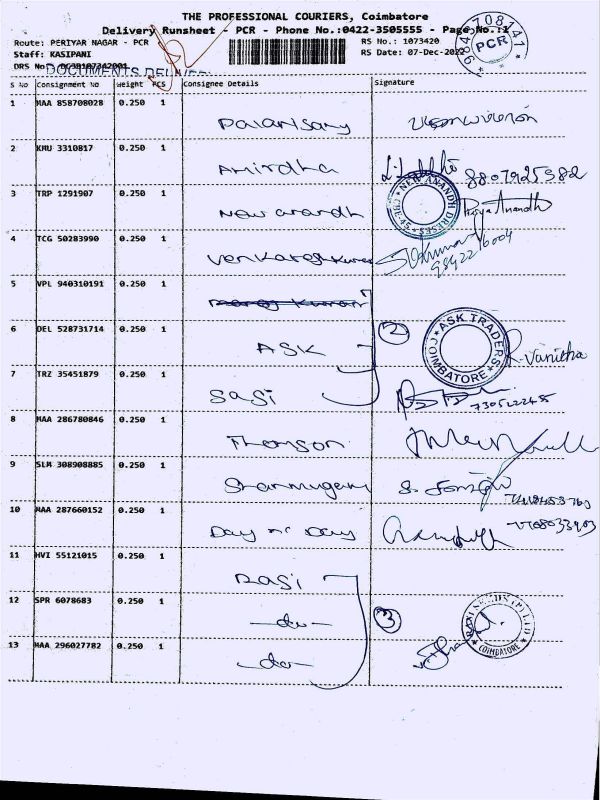 THE PROFESSIONAL COURIERS, Coimbatore
Delivery Runsheet - PCR - Phone No.:0422-3505555 - Page No.:1
Route: PERIYAR NAGAR - PCR RS No.: 1073420
Staff: KASIPANI RS Date: 07-Dec-2022
DRS No
DOCUMENTS DELIVERY
PCR
S No Consignment No Weight PCS Consignee Details Signature
1 MAA 858708028 0.250 1 Palanisamy
2 KMU 3310817 0.250 1 Amirdha 8807925982
3 TRP 1291907 0.250 1 New anandh Priya Anandh
NEW ANANDH DRESSES CBE-45
4 TCG 50283990 0.250 1 Venkatesh Kumar
5 VPL 940310191 0.250 1
6 DEL 528731714 0.250 1 ASK 2 R. Vanitha
ASK TRADERS COIMBATORE
7 TRZ 35451879 0.250 1 Sasi
8 MAA 286780846 0.250 1 Thomson
9 SLM 308908885 0.250 1 Shanmugam
10 MAA 287660152 0.250 1 Day n' Day
11 HVI 55121015 0.250 1 Rasi
12 SPR 6078683 0.250 1 -do- 3
RASI SEEDS (P) LTD COIMBATORE
13 MAA 296027782 0.250 1 -do-